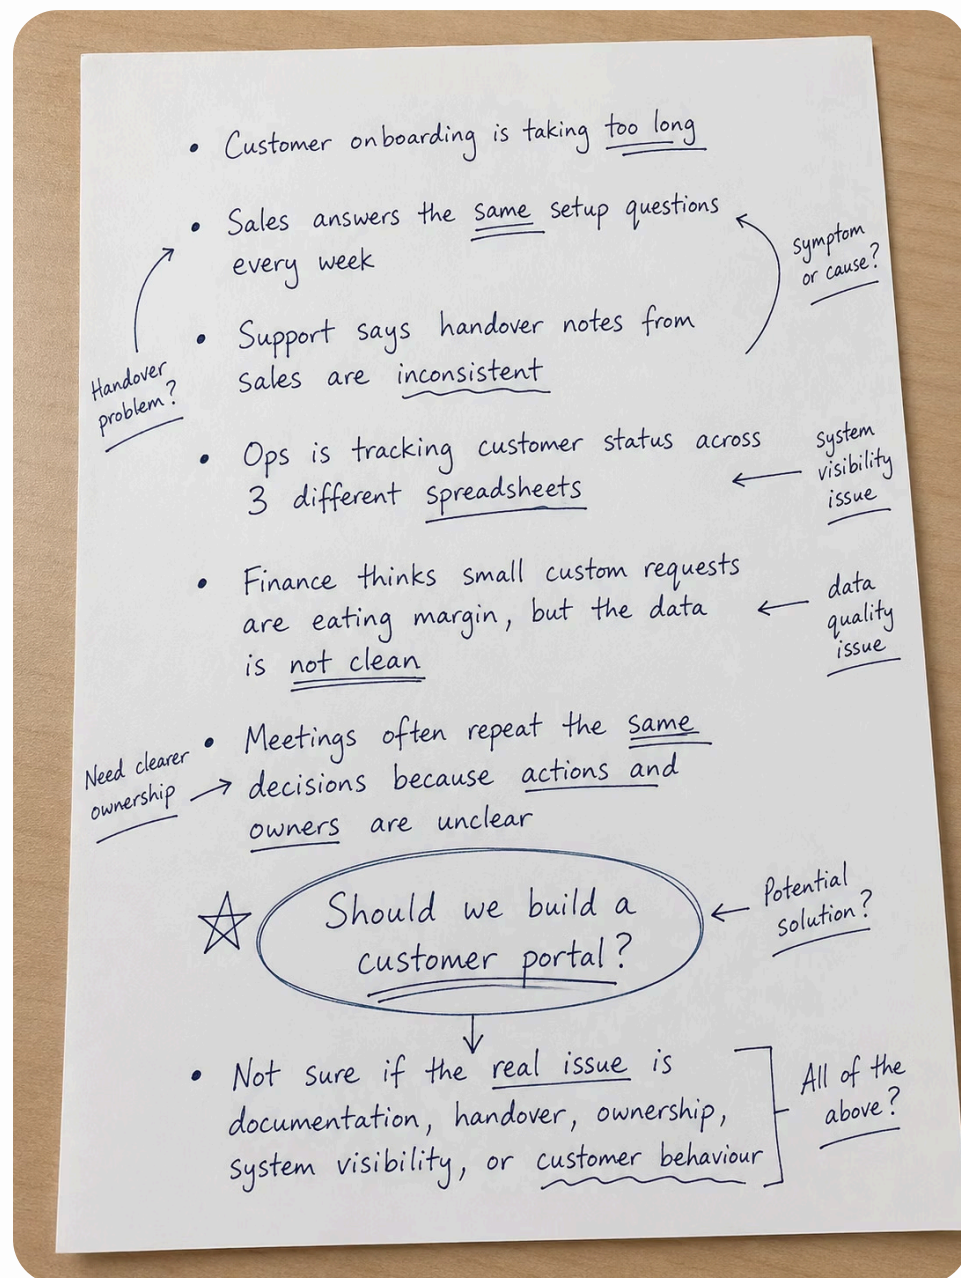 • Customer onboarding is taking too long
• Sales answers the same setup questions
every week
symptom
or cause?
Handover
problem?
• Support says handover notes from
sales are inconsistent
• Ops is tracking customer status across
3 different spreadsheets
system
visibility
issue
• Finance thinks small custom requests
are eating margin, but the data
is not clean
data
quality
issue
• Meetings often repeat the same
decisions because actions and
owners are unclear
Need clearer
ownership
Should we build a
customer portal?
Potential
solution?
• Not sure if the real issue is
documentation, handover, ownership,
system visibility, or customer behaviour
All of the
above?